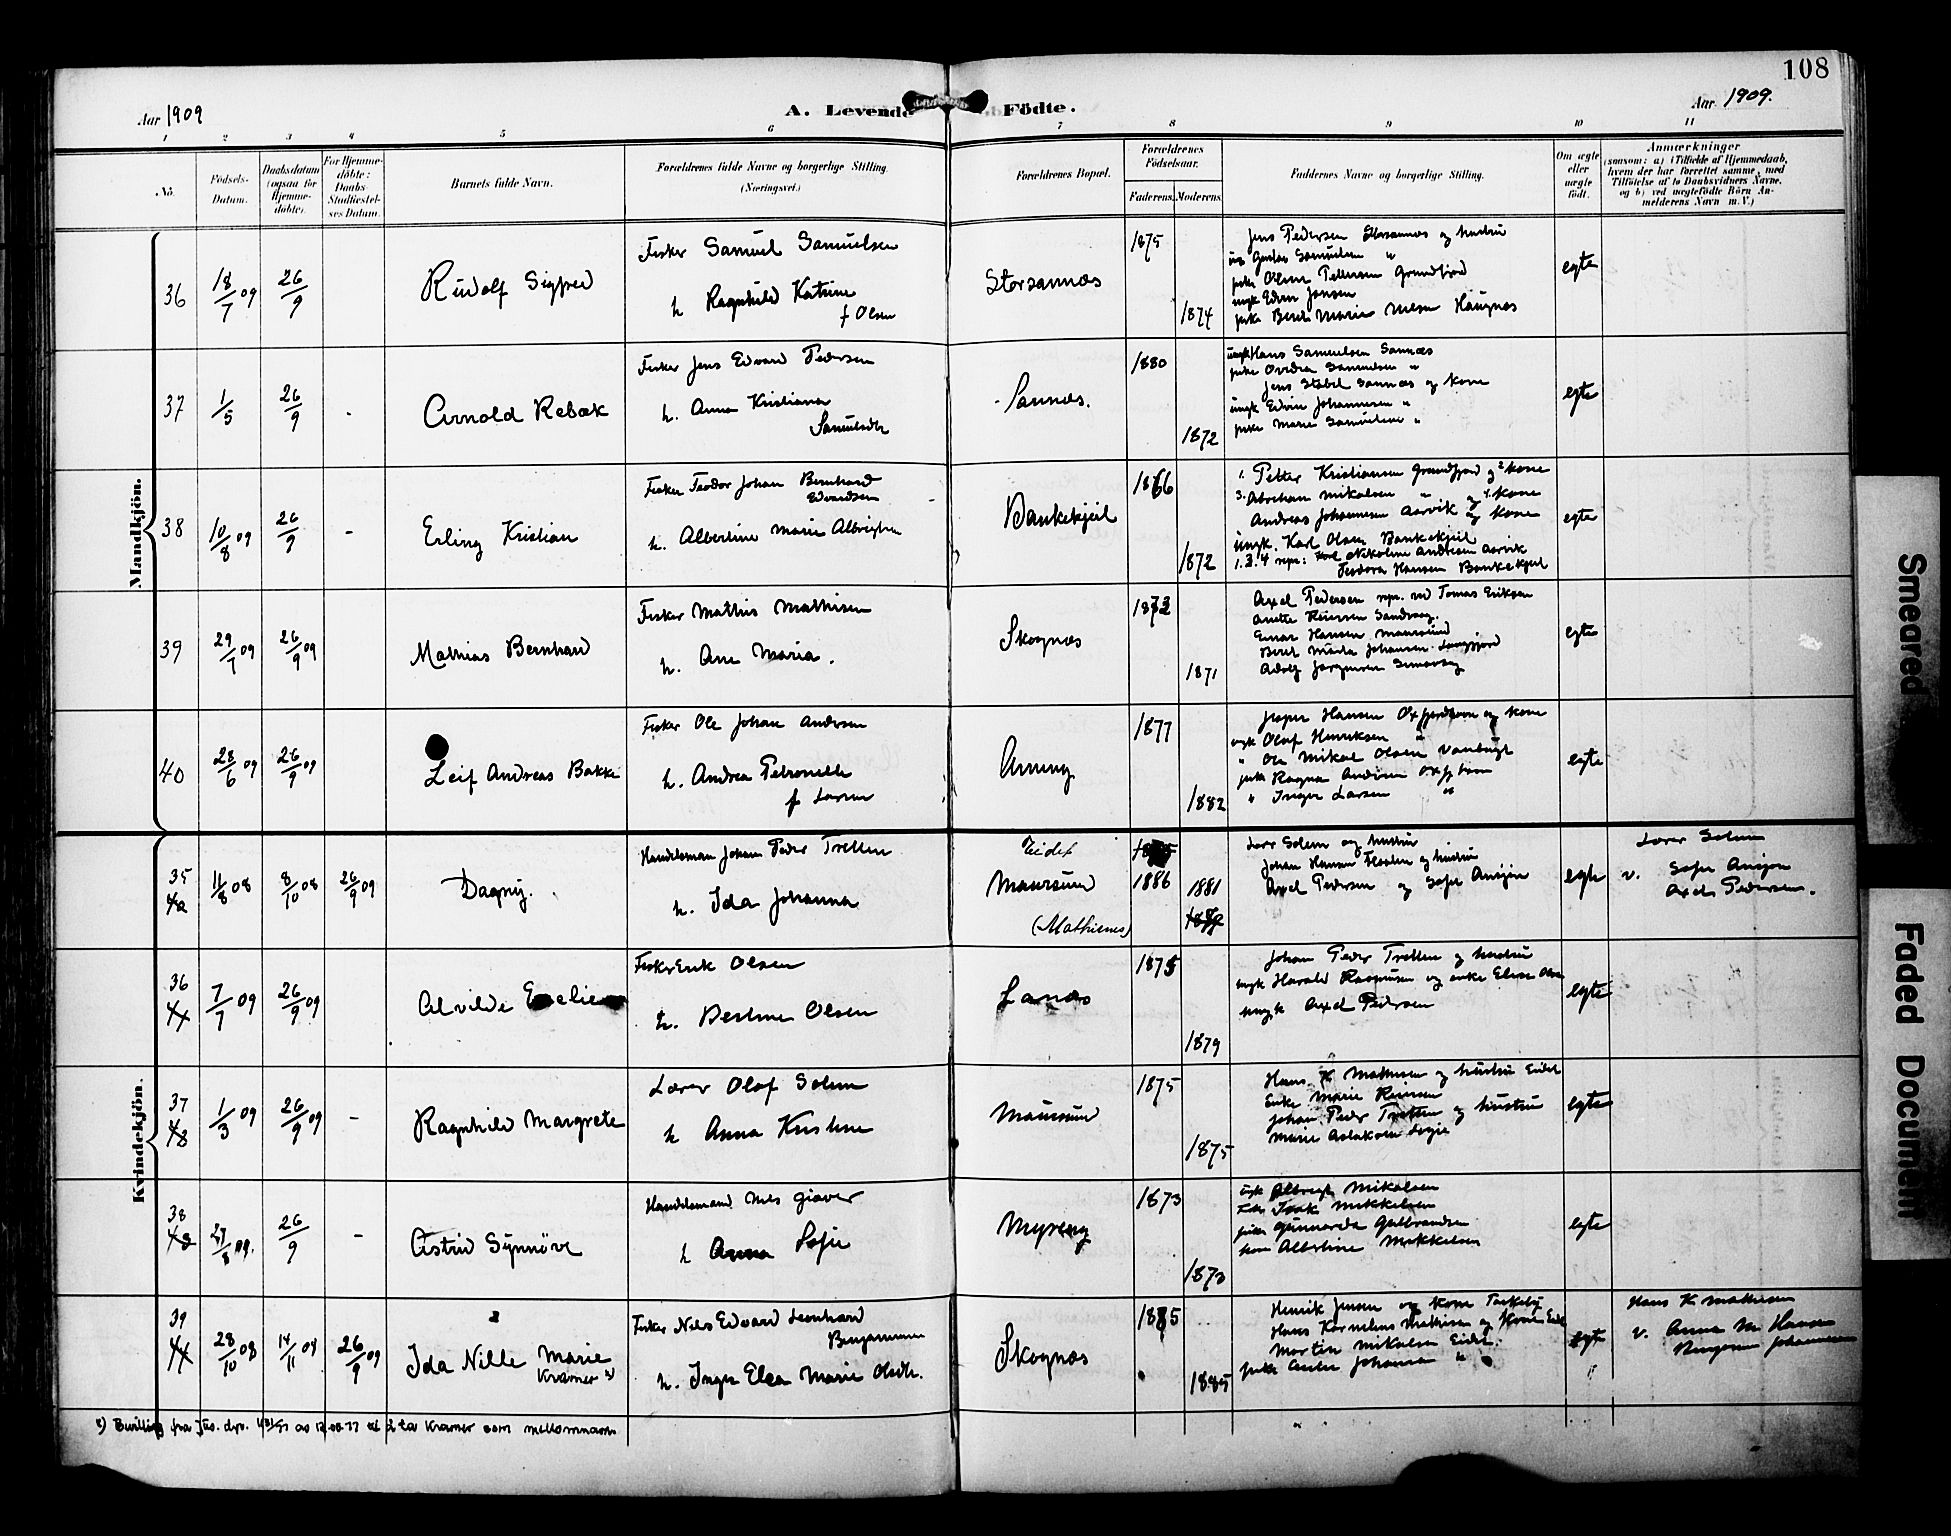 108
Aar 1909
A. Levende Födte.
Aar 1909.
1 2 3 4 5 6 7 8 9 10 11
No.
Födsels-Datum.
Daabsdatum (ogsaa for Hjemme-döbte).
For Hjemme-döbte: Daabs-Stadfæstel-ses Datum.
Barnets fulde Navn.
Forældrenes fulde Navne og borgerlige Stilling.
(Næringsvei.)
Forældrenes Bopæl.
Forældrenes Födselsaar.
Faderens. Moderens.
Faddernes Navne og borgerlige Stilling.
Om ægte eller uægte födt.
Anmærkninger
(saasom: a) i Tilfælde af Hjemmedaab,
hvem der har forrettet samme, med
Tilföielse af to Daabsvidners Navne,
og b) ved uægtefödte Börn An-
melderens Navn m. V.)
Mandkjön.
36 18/7 09 26/9
Rudolf Sigfred
Fisker Samuel Samuelsen
h Ragnhild Katrine
f Olsen
Storsannæs
1875
1874
Jens Pedersen Storsannæs og hustru
Gustav Samuelsen "
pike Olina Pettersen Grundfjord
ungk Edvin Jensen
pike Berit Marie Nilsen Haugnæs
egte
37 1/5 26/9
Arnold Rebæk
Fisker Jens Edvard Pedersen
h. Anna Kristiana
Samuelsdtr
Sannæs.
1880
1872
ungk Hans Samuelsen Sannæs
pike Ovidia Samuelsen "
Jens Stabel Sannæs og kone
ungk Edvin Johannesen "
pike Marie Samuelsen "
egte
38 10/8 09 26/9 -
Erling Kristian
Fisker Teodor Johan Bernhard
Edvardsen
h. Albertine Marie Albrigtsen
Bankekjeil
1866
1872
1. Petter Kristiansen Grundfjord og 2 kone
3. Abraham Mikalsen " og 4. kone
Andreas Johannesen Aarvik og kone
ungk. Karl Olsen Bankekjeil
1. 3. 4 repr: Nikoline Andresen Aarvik
Teodora Hansen Bankekjeil
egte
39 29/7 09 26/9 09
Mathias Bernhard
Fisker Mathis Mathisen
h. Ane Maria.
Skognæs
1873
1871
Axel Pedersen repr. ved Tomas Eriksen
Anette Reiersen Sandvaag.
Einar Hansen Maursund
Berit Marta Johansen Langfjord
Adolf Jørgensen
egte
40 28/6 09 26/9 09
Leif Andreas Bakke
Fisker Ole Johan Andersen
h. Andrea Petronelle
f. Larsen
Arneng
1877
1882
Jesper Hansen Oxfjordhavn og kone
ungk Olaf Henriksen "
" Ole Mikal Olsen
pike Ragna Andersen Oxfj havn
" Inger Larsen "
egte
Kvindekjön.
35 11/8 08 8/10 08 26/9 09
Dagny.
Handelsman Johan Peder Tretten
h. Ida Johanna
Eidet
Maursund
(Mathisnes)
1886 1881
Lærer Solem og hustru
Johan Hansen Flaaten og hustru
Axel Pedersen og Sofie Ansjøn
egte
Lærer Solem
v. Sofie Ansjøn
Axel Pedersen.
36 7/7 09 26/9 09
Alvilde
Fisker Erik Olsen
h. Berline Olsen
Lanæs
1875
1879
Johan Peder Tretten og hustru
ungk Harald Rasmussen og enke Elen Olsen
ungk Axel Pedersen
egte
37 1/3 09 26/9 09 -
Ragnhild Margrete
Lærer Olaf Solem
h Anna Kristine
Maursund
1875
1875
Hans K Mathisen og hustru Eidet
Enke Marie Reiersen
Johan Peder Tretten og hustru
Marie Aslaksen
egte
38 09. 26/9 -
Astrid Synnöve
Handelsmand Nils Giæver
h Anna Sofie
Myreng
1873
1873
ungk Albregt Mikalsen
Isak Mikkelsen
pike Gunnarda Gulbrandsen
kone Albertine Mikkelsen
egte
39 28/10 08 14/11 08 26/9 09
Ida Nille Marie
Kramer *)
Fisker Nils Edvard Leonhard
Benjaminsen
h. Inger Elea Marie Olsdtr.
Skognæs
1885
1885
Henrik Jensen og kone
Hans Kornelius Mathisen og kone Eidet
Morten Mikalsen Eidet
pike Johansen "
egte
Hans K Mathisen
v. Anna M Hansen
Benjamin Johannesen
*) Bevilling fra Jus. dep. til å ta Kramer som mellomnavn
Smeared
Faded Document